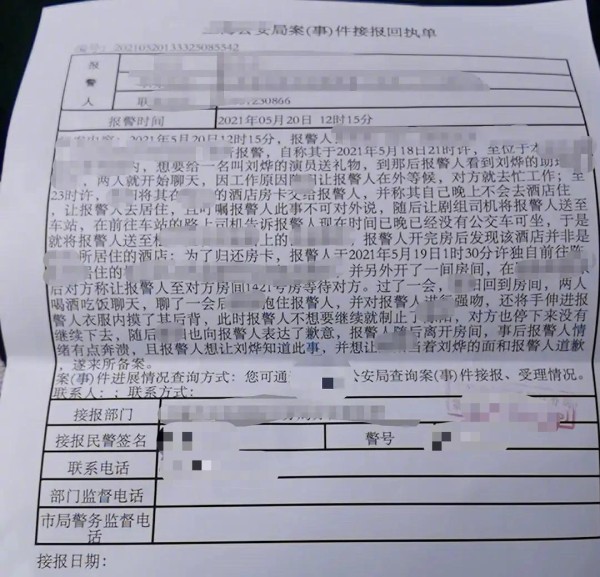 公安局案(事)件接报回执单
编号: 20210520133323085542
报
警
人 联 1230866
报警时间 2021年05月20日 12时15分
2021年5月20日12时15分, 报警人
报警, 自称其于2021年5月18日21时许, 至位于
内, 想要给一名叫刘烨的演员送礼物, 到那后报警人看到刘烨的助
, 两人就开始聊天, 因工作原因 让报警人在外等候, 对方就去忙工作; 至
23时许, 将其在 酒店房卡交给报警人, 并称其自己晚上不会去酒店住
, 让报警人去居住, 且叮嘱报警人此事不可对外说, 随后让剧组司机将报警人送至
车站, 在前往车站的路上司机告诉报警人现在时间已晚已经没有公交车可坐, 于是
就将报警人送至 上的 , 报警人开完房后发现该酒店并非是
所居住的酒店; 为了归还房卡, 报警人于2021年5月19日1时30分许独自前往
居住的 并另外开了一间房间, 在
后对方称让报警人至对方房间1421号房等待对方。过了一会, 回到房间, 两人
喝酒吃饭聊天, 聊了一会后 抱住报警人, 并对报警人进行强吻, 还将手伸进报
警人衣服内摸了其后背, 此时报警人不想要继续就制止了 , 对方也停下来没有
继续下去, 随后 也向报警人表达了歉意, 报警人随后离开房间, 事后报警人情
绪有点奔溃, 且报警人想让刘烨知道此事, 并想 当着刘烨的面和报警人道歉
, 遂来所备案。
案(事)件进展情况查询方式: 您可通 公安局查询案(事)件接报、受理情况。
联系人: ; 联系方式:
接报部门
接报民警签名 警号
联系电话
部门监督电话
市局警务监督电
话
接报日期: